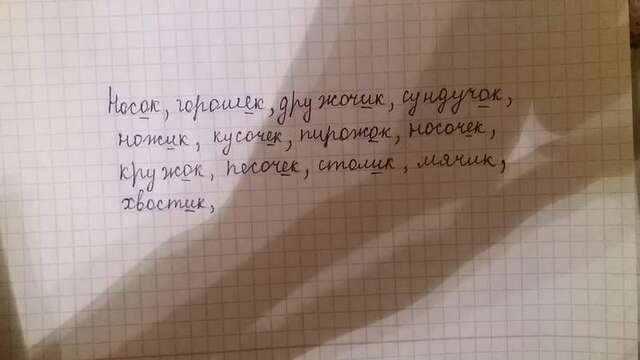 Носок, горошек, дружочик, сундучок,
ножик, кусочек, пирожок, носочек,
кружок, песочек, столик, мячик,
хвостик,